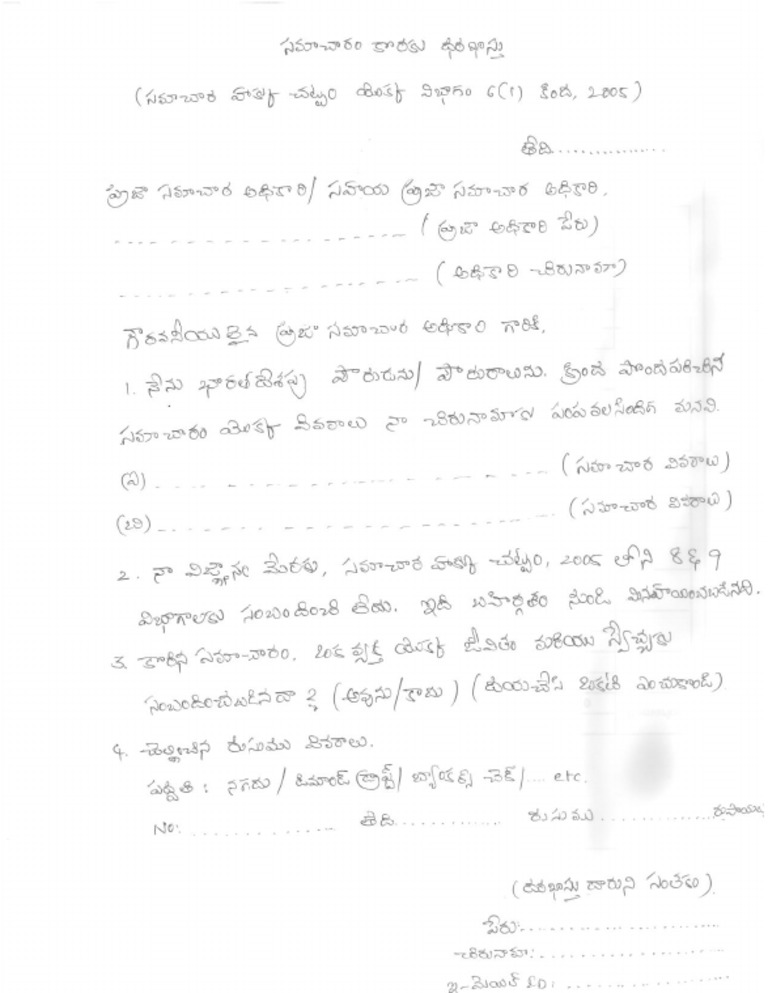 సమాచారం కొరకు దరఖాస్తు
(సమాచార హక్కు చట్టం యొక్క విభాగం 6(1) కింద, 2005)
తేది..............
ప్రజా సమాచార అధికారి/ సహాయ ప్రజా సమాచార అధికారి,
...................... (ప్రజా అధికారి పేరు)
...................... (అధికారి చిరునామా)
గౌరవనీయులైన ప్రజా సమాచార అధికారి గారికి,
1. నేను భారతదేశపు పౌరుడను/ పౌరురాలును. క్రింద పొందుపరిచిన
సమాచారం యొక్క వివరాలు నా చిరునామాకు పంపవలసిందిగ మనవి.
(ఎ) ...................... (సమాచార వివరాలు)
(బి) ...................... (సమాచార వివరాలు)
2. నా విజ్ఞానం మేరకు, సమాచార హక్కు చట్టం, 2005 లోని 8 & 9
విభాగాలకు సంబందించి లేదు. ఇది బహిర్గతం నుండి మినహాయించబడినది.
3. కోరిన సమాచారం. ఒక వ్యక్తి యొక్క జీవితం మరియు స్వేచ్ఛకు
సంబందించబడినదా ? (అవును/కాదు) (దయచేసి ఒకటి ఎంచుకొండి)
4. చెల్లించిన రుసుము వివరాలు.
పద్దతి : నగదు / డిమాండ్ డ్రాఫ్ట్/ బ్యాంకర్స్ చెక్/.... etc.
No: .............. తేది.............. రుసుము .............. రుపాయలు
(దరఖాస్తు దారుని సంతకం)
పేరు:......................
చిరునామా:......................
ఇ-మెయిల్ ID: ......................